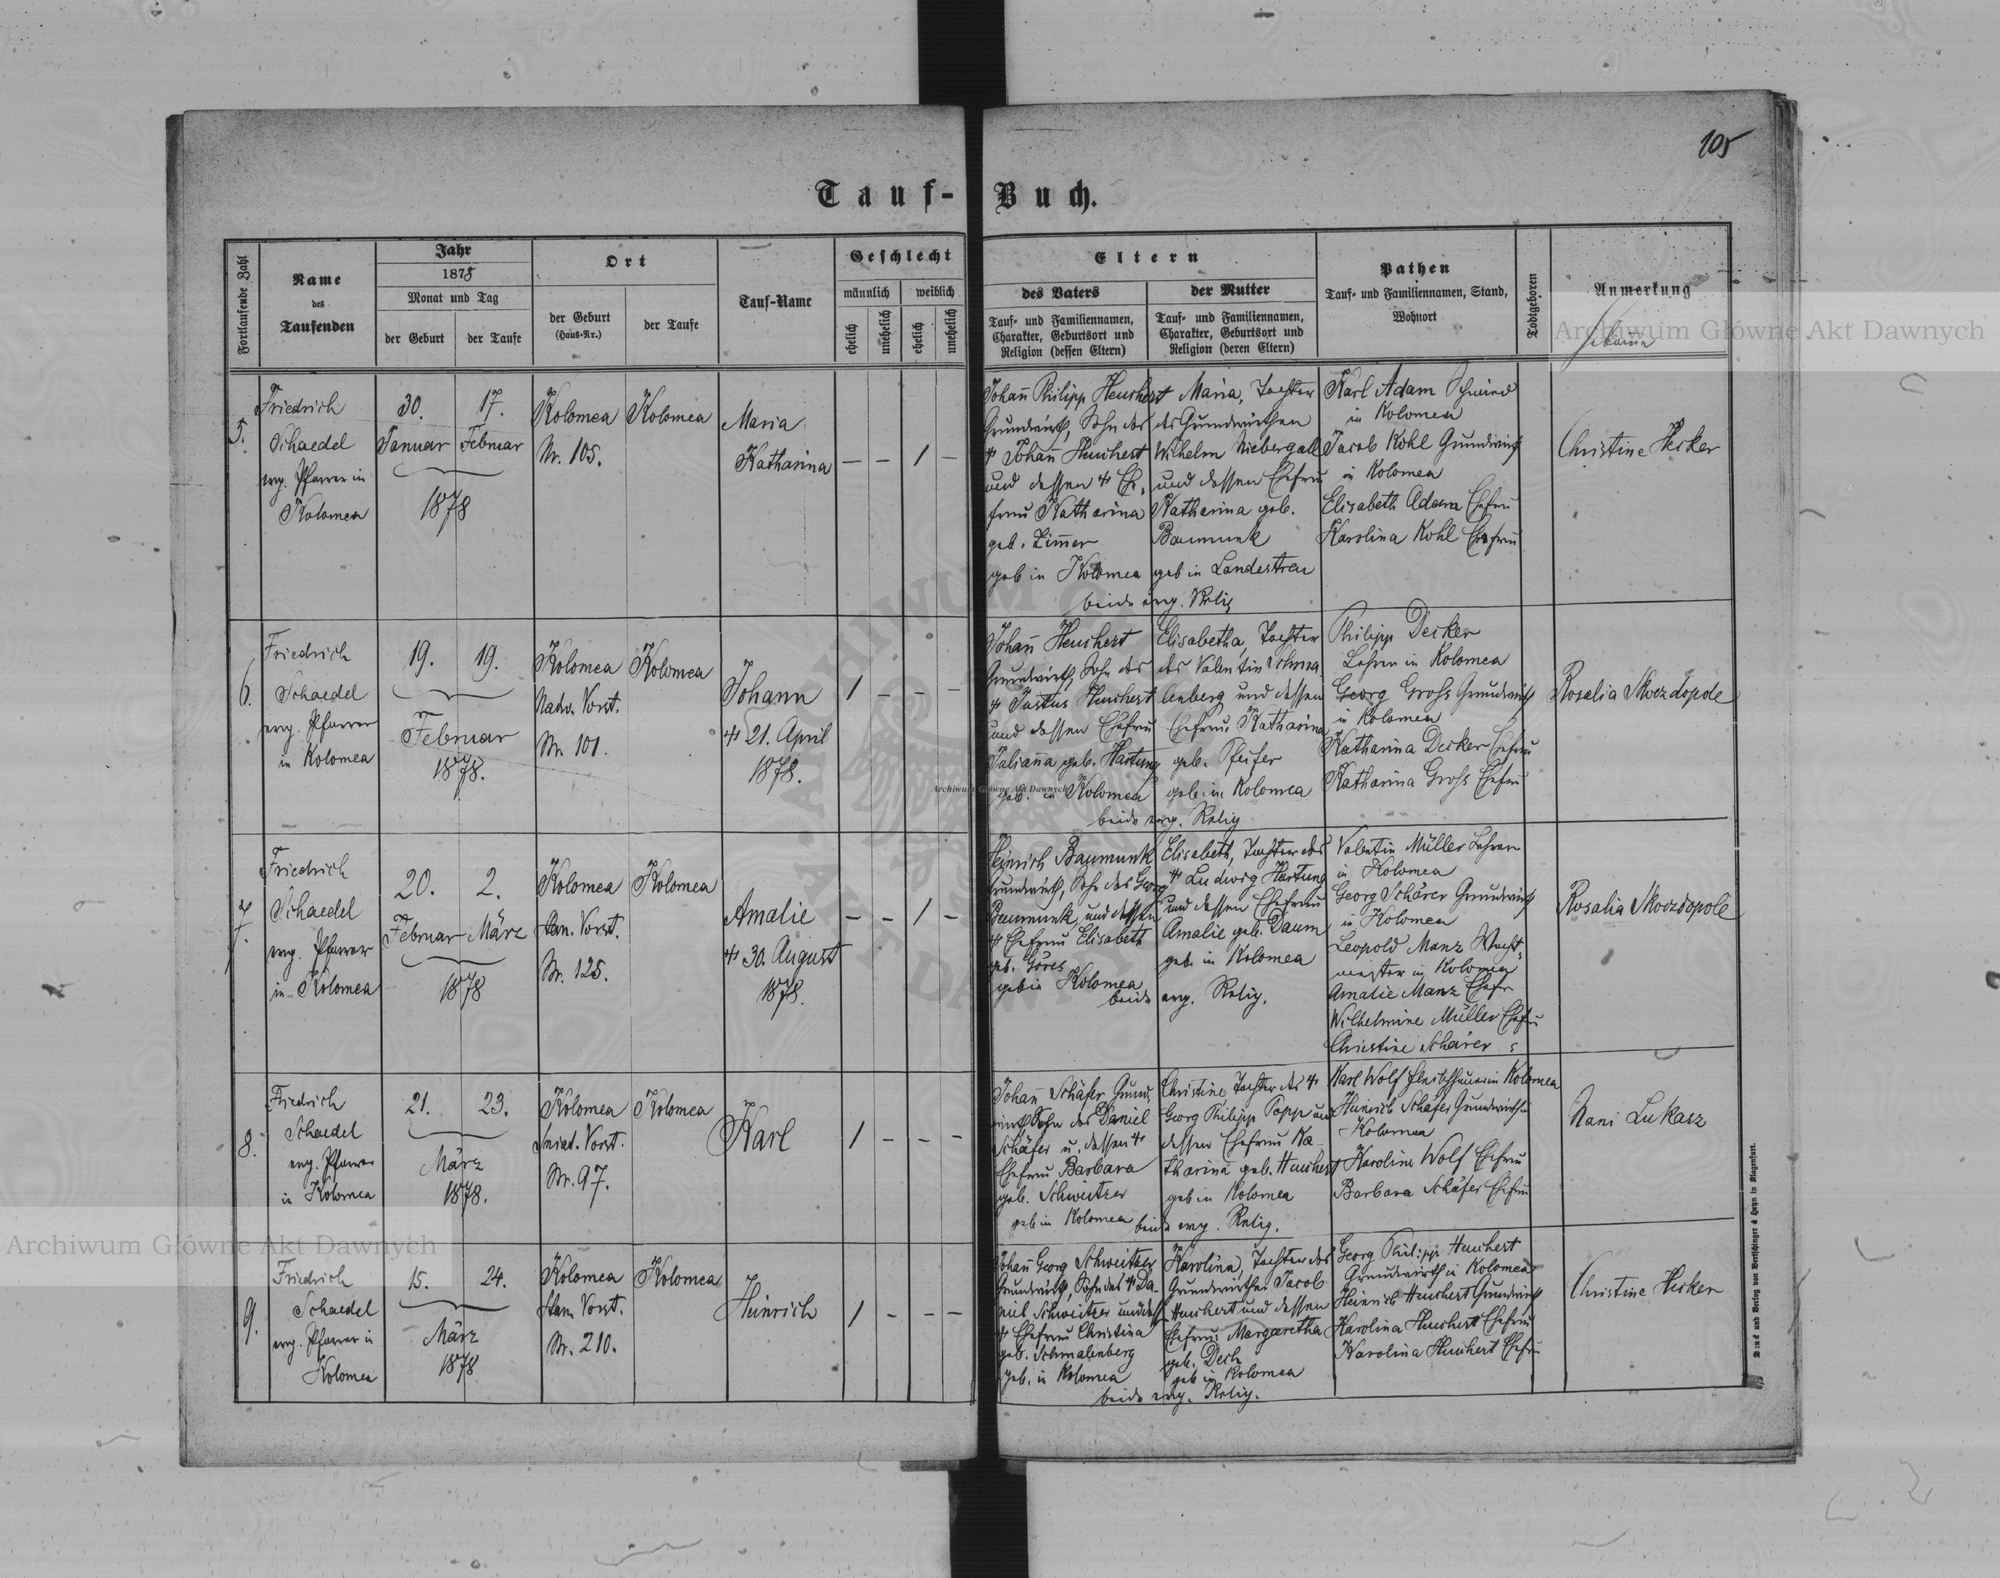 105
Tauf-Buch.
Fortlaufende Zahl
Name
des
Taufenden
Jahr
1878
Monat und Tag
der Geburt
der Taufe
Ort
der Geburt
(Haus-Nr.)
der Taufe
Tauf-Name
Geschlecht
männlich
weiblich
ehelich
unehelich
ehelich
unehelich
Eltern
des Vaters
Tauf- und Familiennamen,
Charakter, Geburtsort und
Religion (dessen Eltern)
der Mutter
Tauf- und Familiennamen,
Charakter, Geburtsort und
Religion (deren Eltern)
Pathen
Tauf- und Familiennamen, Stand,
Wohnort
Todtgeboren
Anmerkung
5.
Friedrich
Schaedel
evg. Pfarrer in
Kolomea
30.
Januar
17.
Februar
1878
Kolomea
Nr. 105.
Kolomea
Maria
Katharina
— — 1 —
Johann Philipp Heuchert
Grundwirth, Sohn des
† Johann Heuchert
und dessen † Ehe-
frau Katharina
geb. Zimmer
geb in Kolomea
Maria, Tochter
des Grundwirthen
Wilhelm Niebergall
und dessen Ehefrau
Katharina geb.
Baumunk
geb in Landestreu
beide evg. Relig
Karl Adam
in Kolomea
Jacob Kohl Grundwirth
in Kolomea
Elisabeth Adam Ehefrau
Karolina Kohl Ehefrau
Christine Hecker
6.
Friedrich
Schaedel
evg. Pfarrer
in Kolomea
19.
19.
Februar
1878.
Kolomea
Nadw. Vorst.
Nr. 101.
Kolomea
Johann
† 21. April
1878.
1 — — —
Johann Heuchert
Grundwirth, Sohn des
† Justus Heuchert
und dessen Ehefrau
Juliana geb. Hartung
geb. in Kolomea
Elisabetha, Tochter
des Valentin Schma
lenberg und dessen
Ehefrau Katharina
geb. Pfeifer
geb in Kolomea
beide evg. Relig
Philipp Decker
Lehrer in Kolomea
Georg Groß Grundwirth
in Kolomea
Katharina Decker Ehefrau
Katharina Groß Ehefrau
Rosalia Skozdopole
7.
Friedrich
Schaedel
evg. Pfarrer
in Kolomea
20.
Februar
2.
März
1878
Kolomea
Stan. Vorst.
Nr. 125.
Kolomea
Amalie
† 30. August
1878.
— — 1 —
Heinrich Baumunk
Grundwirth, Sohn des Georg
Baumunk, und dessen
† Ehefrau Elisabeth
geb. Göres
geb in Kolomea
Elisabeth, Tochter des
† Ludwig Hartung
und dessen Ehefrau
Amalie geb. Daum
geb. in Kolomea
beide evg. Relig.
Valentin Müller Lehrer
in Kolomea
Georg Schärer Grundwirth
in Kolomea
Leopold Manz Wacht-
meister in Kolomea
Amalie Manz Ehefr
Wilhelmine Müller Ehefrau
Christine Schärer
Rosalia Skozdopole
8.
Friedrich
Schaedel
evg. Pfarrer
in Kolomea
21.
23.
März
1878.
Kolomea
Sniat. Vorst.
Nr. 97.
Kolomea
Karl
1 — — —
Johann Schäfer Grund-
wirth, Sohn des Daniel
Schäfer u. dessen †
Ehefrau Barbara
geb. Schweitzer
geb in Kolomea
Christine Tochter des †
Georg Philipp Popp und
dessen Ehefrau Ka-
tharina geb. Heuchert
geb in Kolomea
beide evg. Relig.
Karl Wolf Fleischhauer in Kolomea
Heinrich Schäfer Grundwirth in
Kolomea
Karoline Wolf Ehefrau
Barbara Schäfer Ehefrau
Nani Lukasz
9.
Friedrich
Schaedel
evg. Pfarrer in
Kolomea
15.
24.
März
1878
Kolomea
Stan. Vorst.
Nr. 210.
Kolomea
Heinrich
1 — — —
Johann Georg Schweitzer
Grundwirth, Sohn des † Da
niel Schweitzer und dess
† Ehefrau Christina
geb. Schmalenberg
geb. in Kolomea
Karolina, Tochter des
Grundwirthes Jacob
Heuchert und dessen
Ehefrau Margaretha
geb. Dech
geb in Kolomea
beide evg. Relig.
Georg Philipp Heuchert
Grundwirth in Kolomea
Heinrich Heuchert Grundwirth
Karolina Heuchert Ehefrau
Karolina Heuchert Ehefrau
Christine Hecker
Druck und Verlag von Bertschinger & Heyn in Klagenfurt.
Archiwum Główne Akt Dawnych
Archiwum Główne Akt Dawnych
Archiwum Główne Akt Dawnych